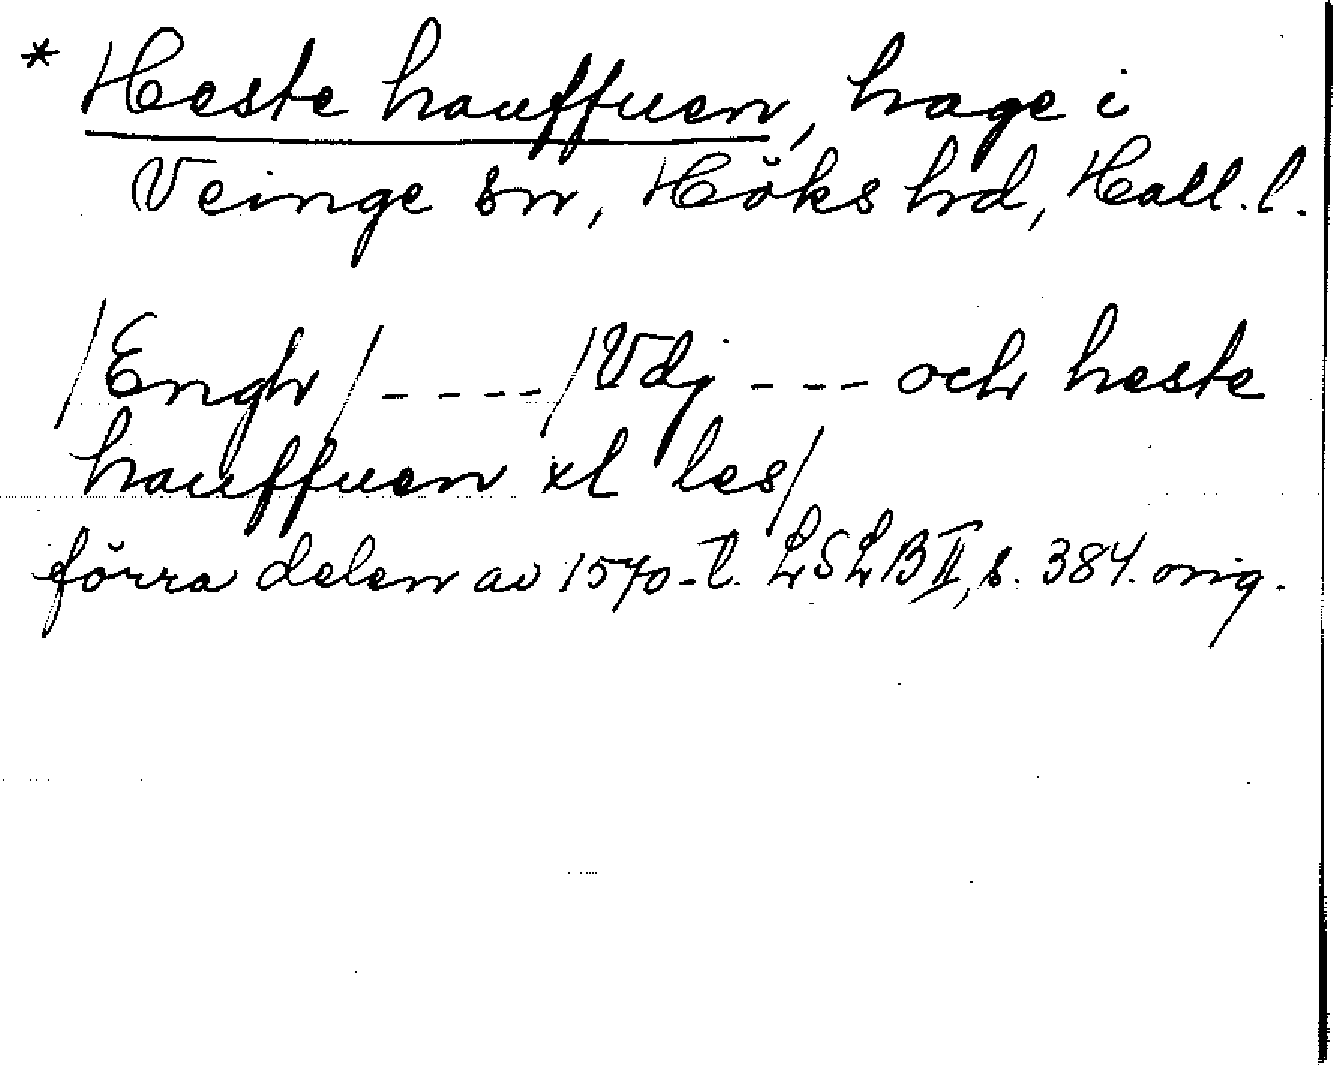 * Heste hauffuen, hage i
Veinge sn, Höks hd, Hall. l.
/Engh/ ---- /Vdj --- och heste
hauffuen xl les/
förra delen av 1570-t. LSLB II, s. 384. orig.